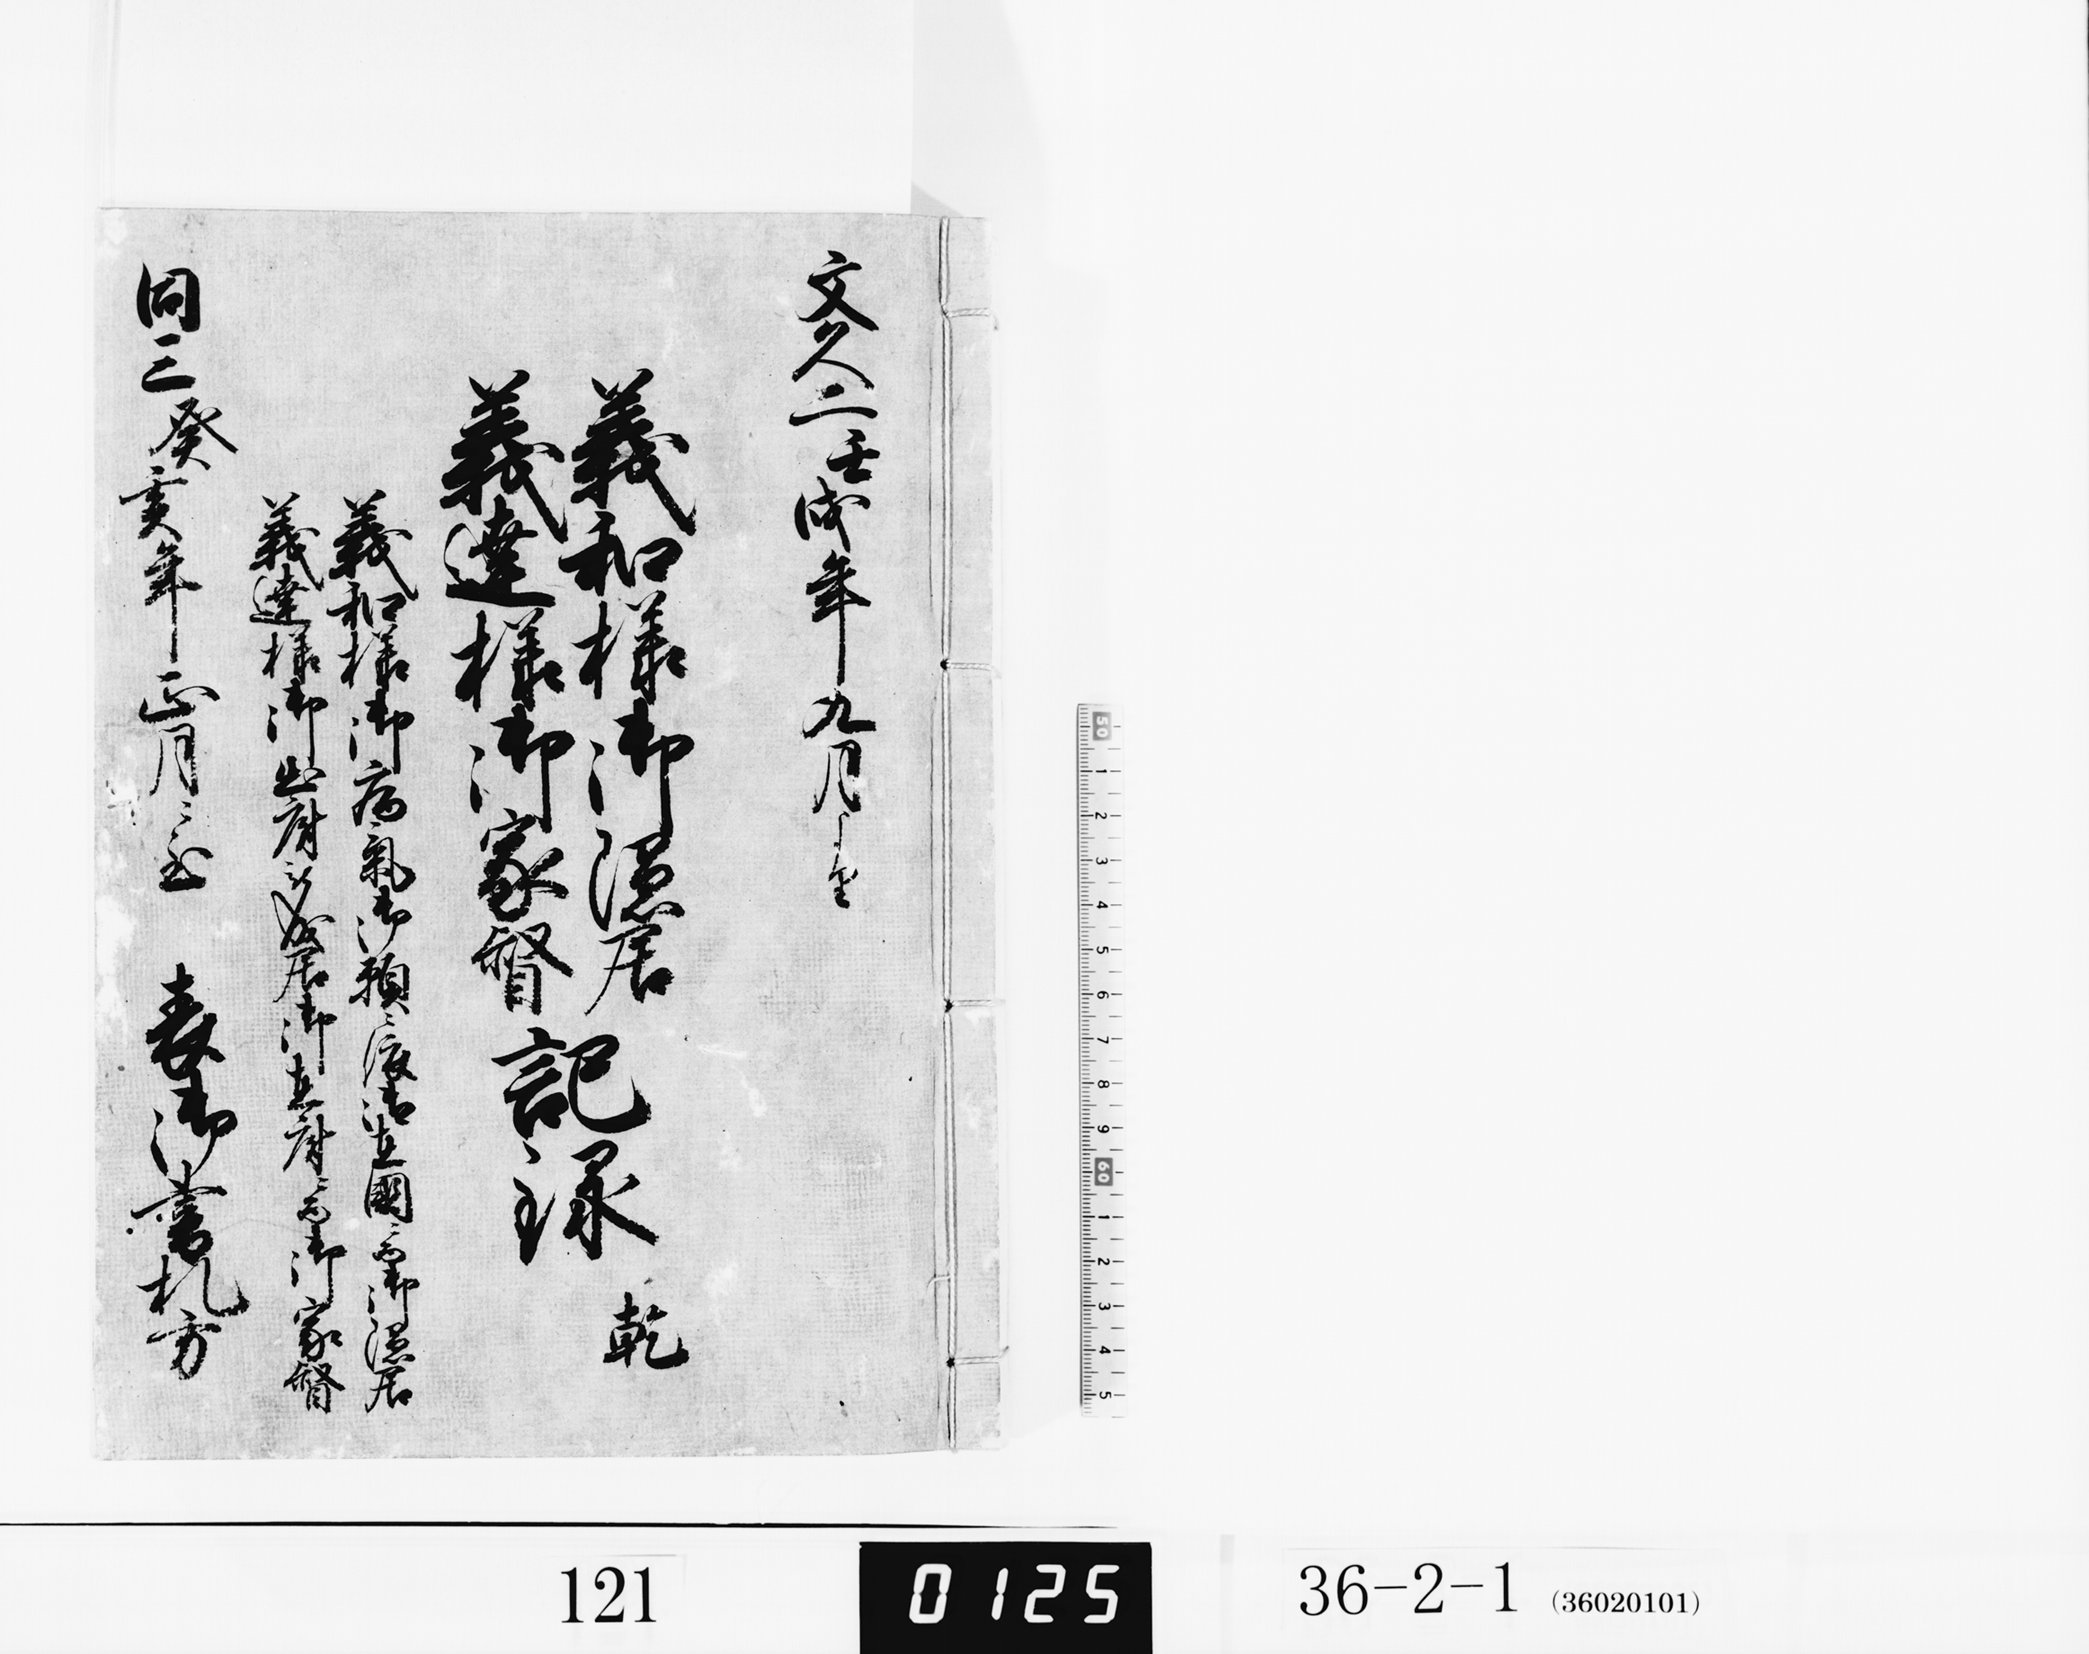 文久二壬戌年九月ゟ
義和様御隠居
義達様御家督
記録
乾
義和様御病氣御頼ニ度御在國ニ而御隠居
義達様御出府被成居御在府ニ而御家督
同三癸亥年正月ニ至
表御書札方
50 1 2 3 4 5 6 7 8 9 60 1 2 3 4 5
121
0125
36-2-1 (36020101)